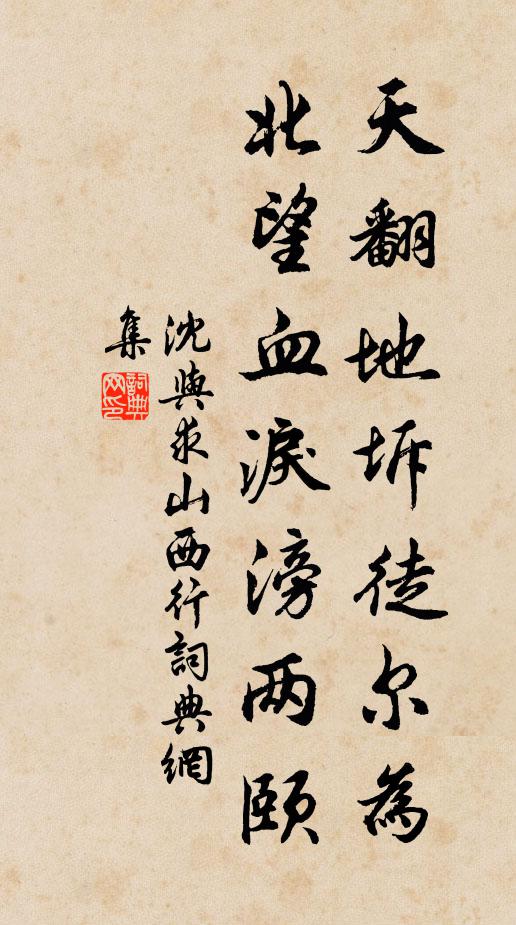 天翻地坼徒尔為
北望血淚滂两頤
沈與求山西行詞典網
集
詞典网印